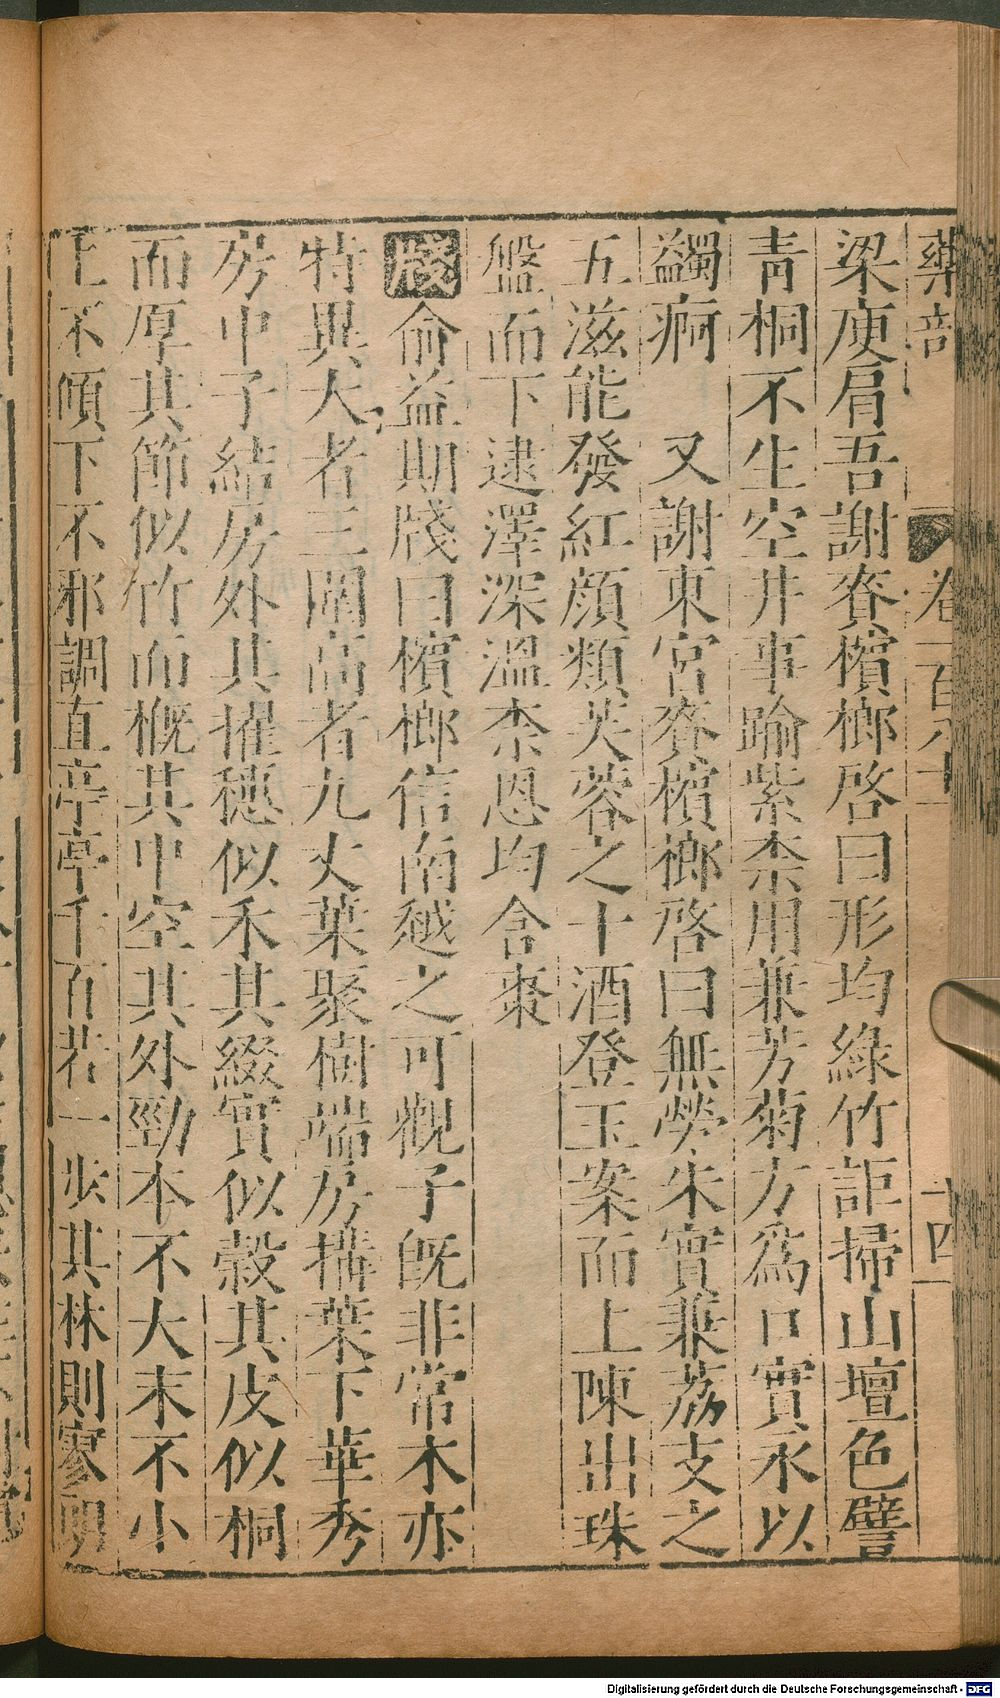 藥部 卷一百八十 十四
梁庾肩吾謝賚檳榔啓曰形均綠竹詎掃山壇色譬
青桐不生空井事踰紫柰用兼芳菊方爲口實永以
蠲痾 又謝東宮賚檳榔啓曰無勞朱實兼荔支之
五滋能發紅顏類芙蓉之十酒登玉案而上陳出珠
盤而下逮澤深溫柰恩均含棗
牋俞益期牋曰檳榔信南越之可觀子旣非常木亦
特異大者三圍高者九丈葉聚樹端房搆葉下華秀
房中子結房外其擢穗似禾其綴實似穀其皮似桐
而厚其節似竹而槪其中空其外勁本不大末不小
上不傾下不邪調直亭亭千百若一步其林則寥朗
Digitalisierung gefördert durch die Deutsche Forschungsgemeinschaft - DFG